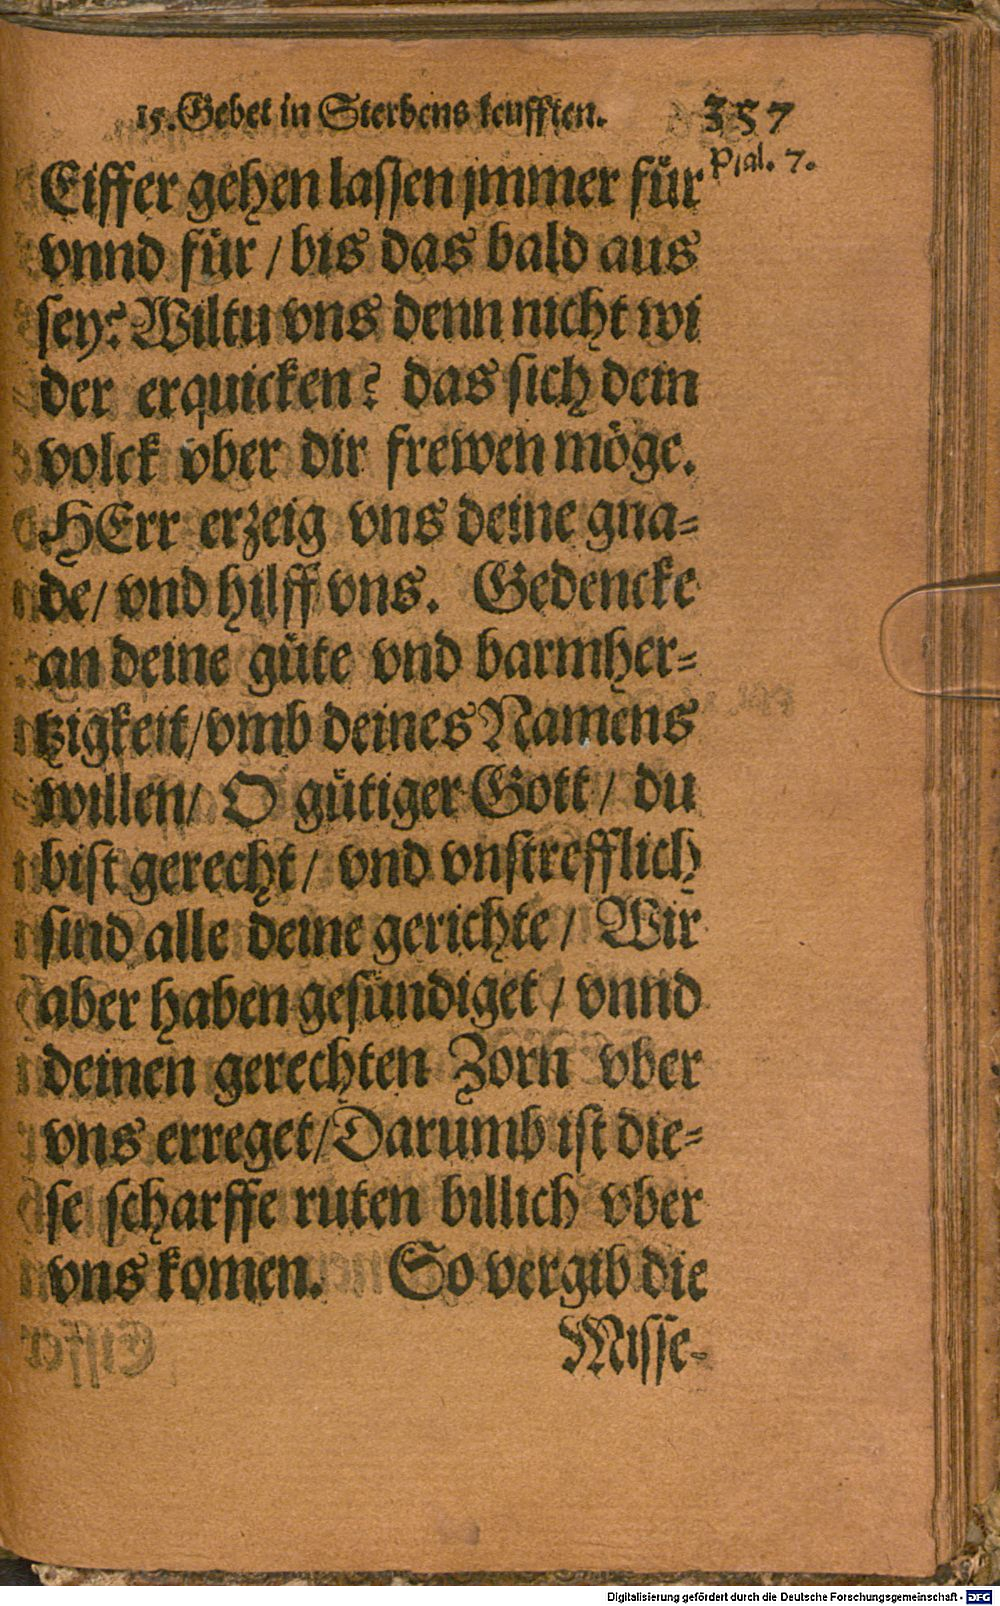 15. Gebet in Sterbens leufften. 357
Psal. 7.
Eiffer gehen lassen jmmer für
vnnd für / bis das bald aus
sey? Wiltu vns denn nicht wi
der erquicken? das sich dein
volck vber dir frewen möge.
HErr erzeig vns deine gna⸗
de / vnd hilff vns. Gedencke
an deine güte vnd barmher⸗
tzigkeit / vmb deines Namens
willen / O gütiger Gott / du
bist gerecht / vnd vnstrefflich
sind alle deine gerichte / Wir
aber haben gesündiget / vnnd
deinen gerechten Zorn vber
vns erreget / Darumb ist die⸗
se scharffe ruten billich vber
vns komen. So vergib die
Misse-
Digitalisierung gefördert durch die Deutsche Forschungsgemeinschaft - DFG